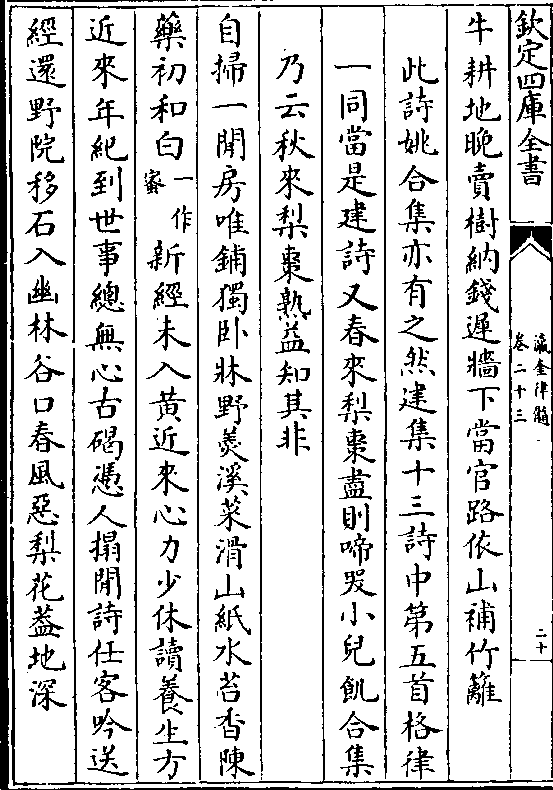 欽定四庫全書
瀛奎律髓
卷二十三
二十
牛耕地晚賣樹納錢遲牆下當官路依山補竹籬
此詩姚合集亦有之然建集十三詩中第五首格律
一同當是建詩又春來梨棗盡則啼哭小兒飢合集
乃云秋來梨棗熟益知其非
自掃一閒房唯鋪獨卧牀野羮溪菜滑山紙水苔香陳
藥初和白一作蜜新經未入黃近來心力少休讀養生方
近來年紀到世事總無心古碣憑人搨閒詩任客吟送
經還野院移石入幽林谷口春風惡梨花葢地深